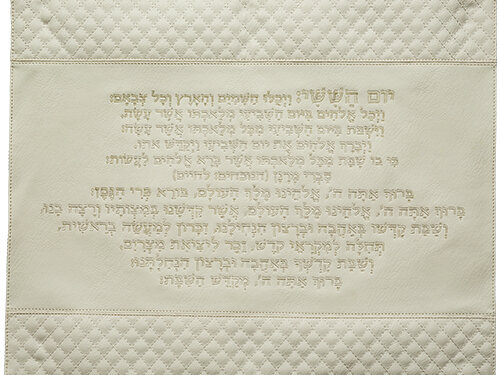 יום הששי: ויכלו השמים והארץ וכל צבאם:
ויכל אלהים ביום השביעי מלאכתו אשר עשה,
וישבת ביום השביעי מכל מלאכתו אשר עשה:
ויברך אלהים את יום השביעי ויקדש אותו,
כי בו שבת מכל מלאכתו אשר ברא אלהים לעשות:
סברי מרנן (המסובים: לחיים)
ברוך אתה ה', אלהינו מלך העולם, בורא פרי הגפן:
ברוך אתה ה', אלהינו מלך העולם, אשר קדשנו במצותיו ורצה בנו,
ושבת קדשו באהבה וברצון הנחילנו, זכרון למעשה בראשית,
תחלה למקראי קדש, זכר ליציאת מצרים,
ושבת קדשך באהבה וברצון הנחלתנו:
ברוך אתה ה', מקדש השבת: